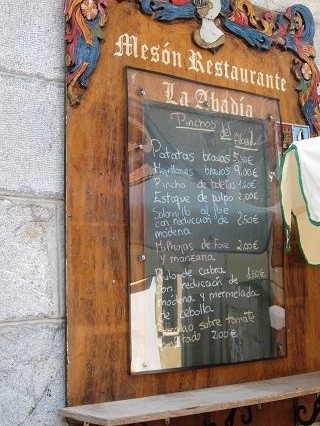 Mesón Restaurante
La Abadía
Pinchos del
Patatas bravas
Mejillones bravos 9,00€
Pincho de
Estaque de pulpo 2,00€
Solomillo al foie
con reducción de 2,50€
modena
Milhojas de foie 2.00€
y manzana
Rulo de cabra 1,80€
con reducción de
modena y mermelada
de cebolla
sobre tomate
2.00€